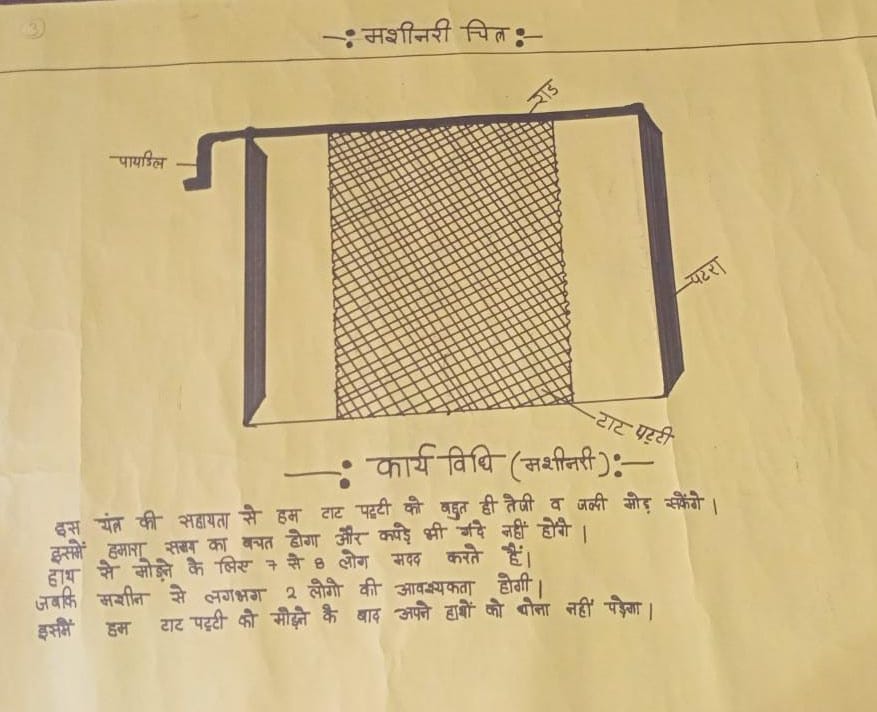 3
—: मशीनरी चित्र :—
राड
पायडिल
पटरा
टाट पट्टी
—: कार्य विधि (मशीनरी) :—
इस यंत्र की सहायता से हम टाट पट्टी को बहुत ही तेजी व जल्दी मोड़ सकेंगे।
इसमें हमारा समय का बचत होगा और कपड़े भी गंदे नहीं होंगे।
हाथ से मोड़ने के लिए 7 से 8 लोग मदद करते हैं।
जबकि मशीन से लगभग 2 लोगो की आवश्यकता होगी।
इसमें हम टाट पट्टी को मोड़ने के बाद अपने हाथों को धोना नहीं पड़ेगा।